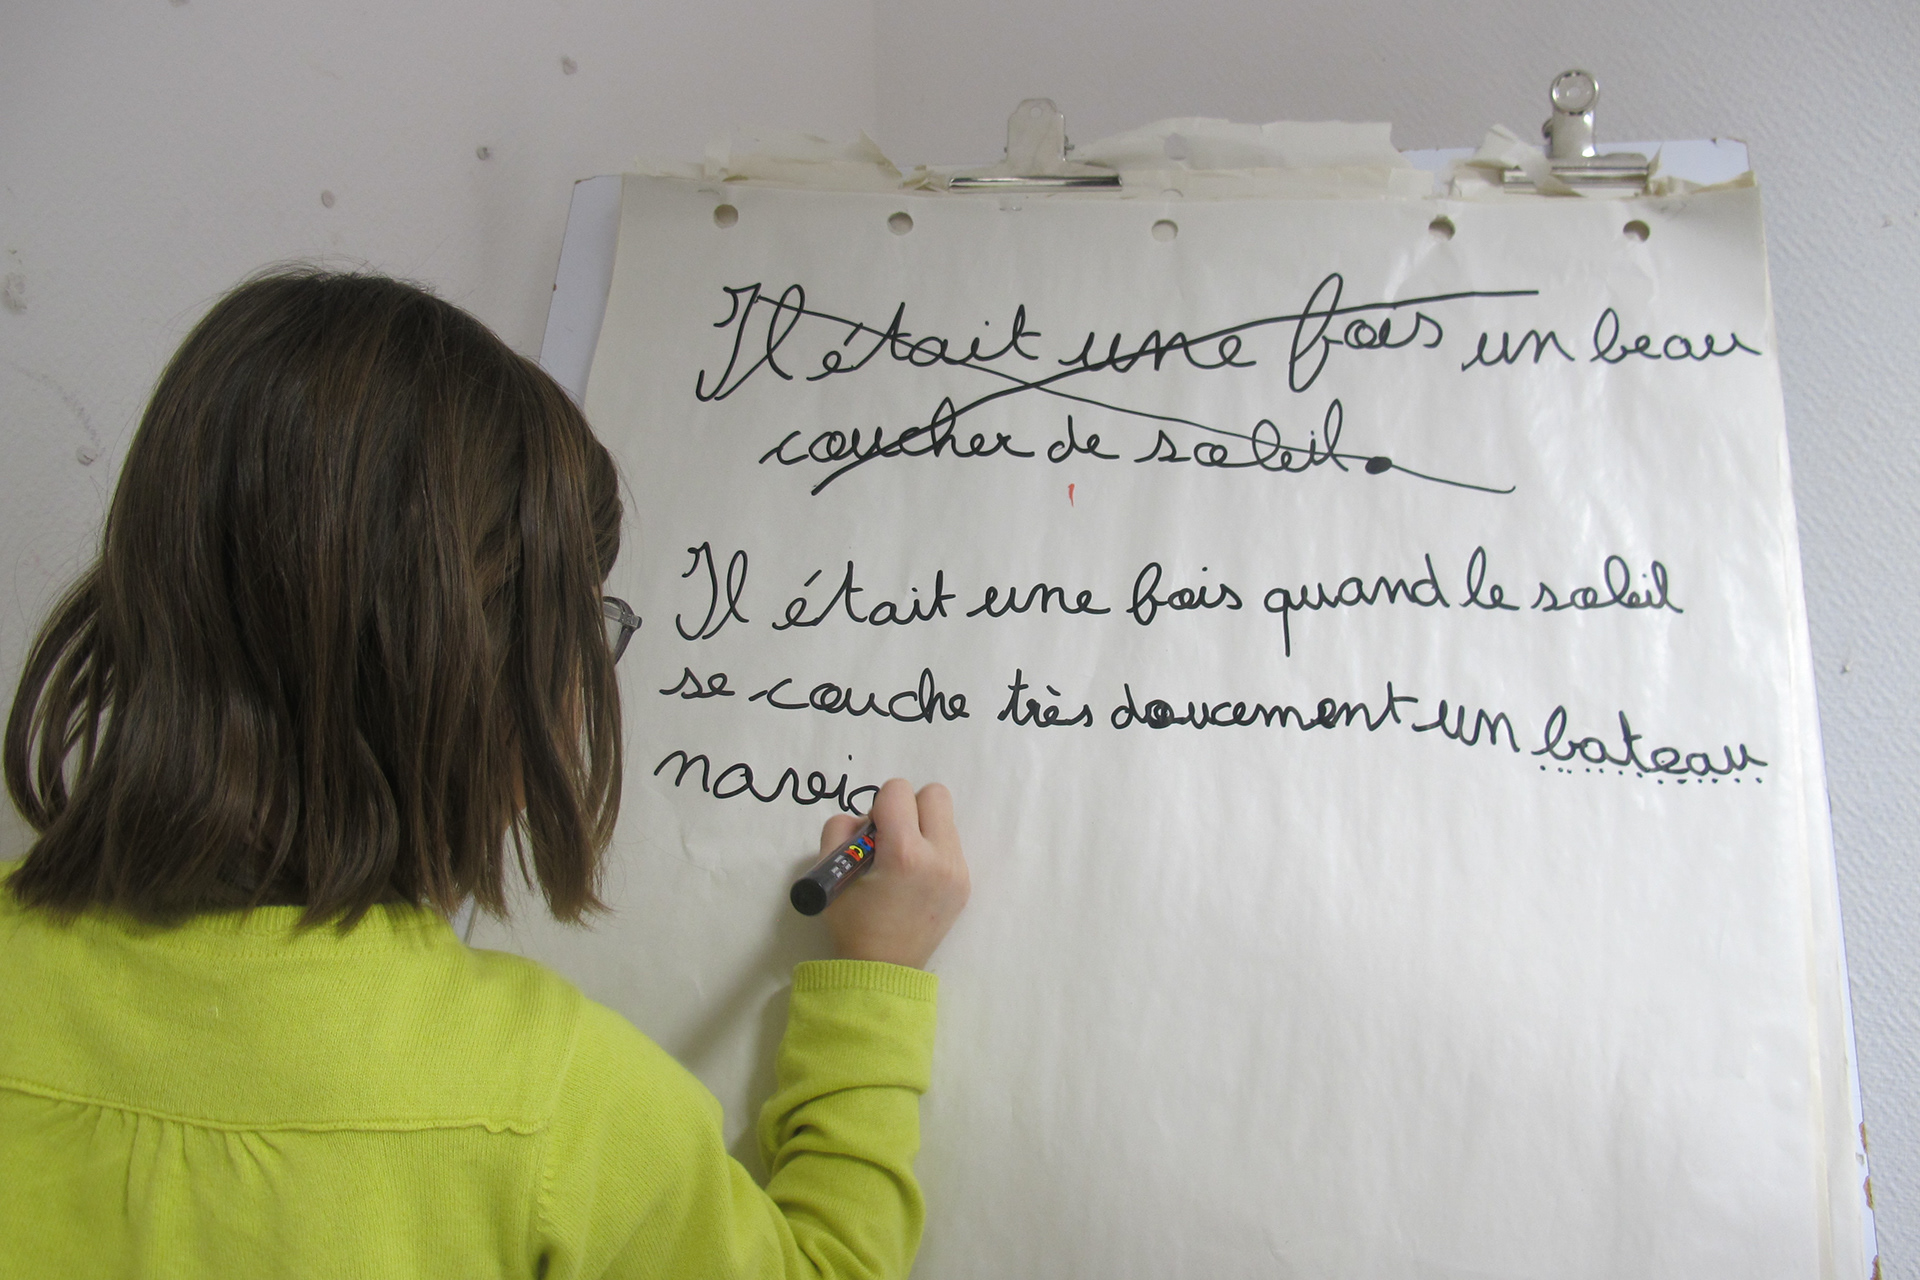 Il était une fois un beau
coucher de soleil.
Il était une fois quand le soleil
se couche très doucement un bateau
navig